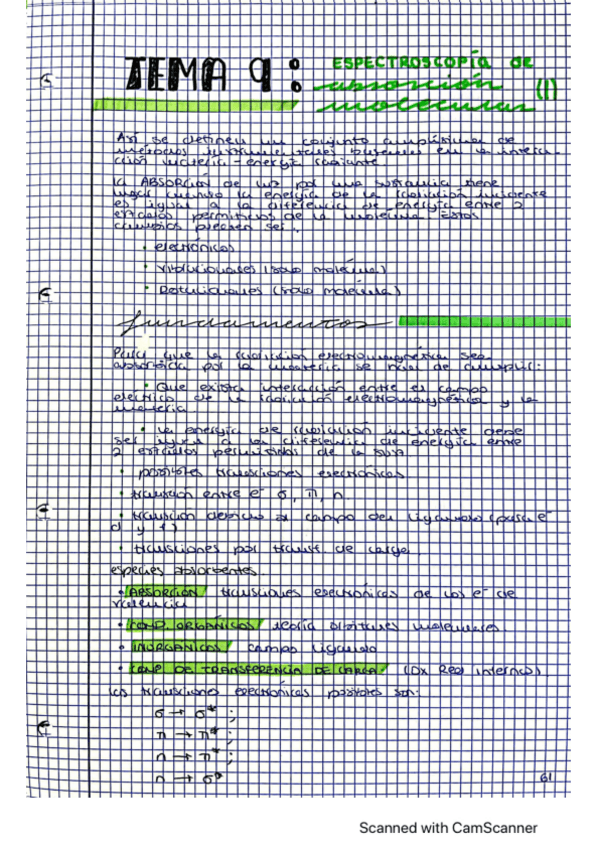 TEMA 9:
ESPECTROSCOPÍA de
absorción (I)
molecular
Así se definen un conjunto amplísimo de
métodos instrumentales basados en la interac-
ción materia-energía radiante
La ABSORCIÓN de luz por una sustancia tiene
lugar cuando la energía de la radiación incidente
es igual a la diferencia de energía entre 2
estados permitidos de la molécula. Estos
cambios pueden ser:
• electrónicos
• Vibracionales (solo molécula)
• Rotacionales (solo molécula)
fundamentos
Para que la radiación electromagnética sea
absorbida por la materia se han de cumplir:
• Que exista interacción entre el campo
eléctrico de la radiación electromagnética y la
materia.
• la energía de radiación incidente debe
ser igual a la diferencia de energía entre
2 estados permitidos de la
• posibles transiciones electrónicas
• transición entre e⁻ σ, π, n
• transición debido al campo del ligando (para e⁻
d y f)
• transiciones por transf. de carga
especies absorbentes
• ABSORCIÓN transiciones electrónicas de los e⁻ de
valencia
• COMP. ORGÁNICOS teoría orbitales moleculares
• INORGÁNICOS campo ligando
• COMP. DE TRANSFERENCIA DE CARGA (Ox Red interno)
las transiciones electrónicas posibles son:
σ → σ* ;
π → π* ;
n → π* ;
n → σ*
61
Scanned with CamScanner